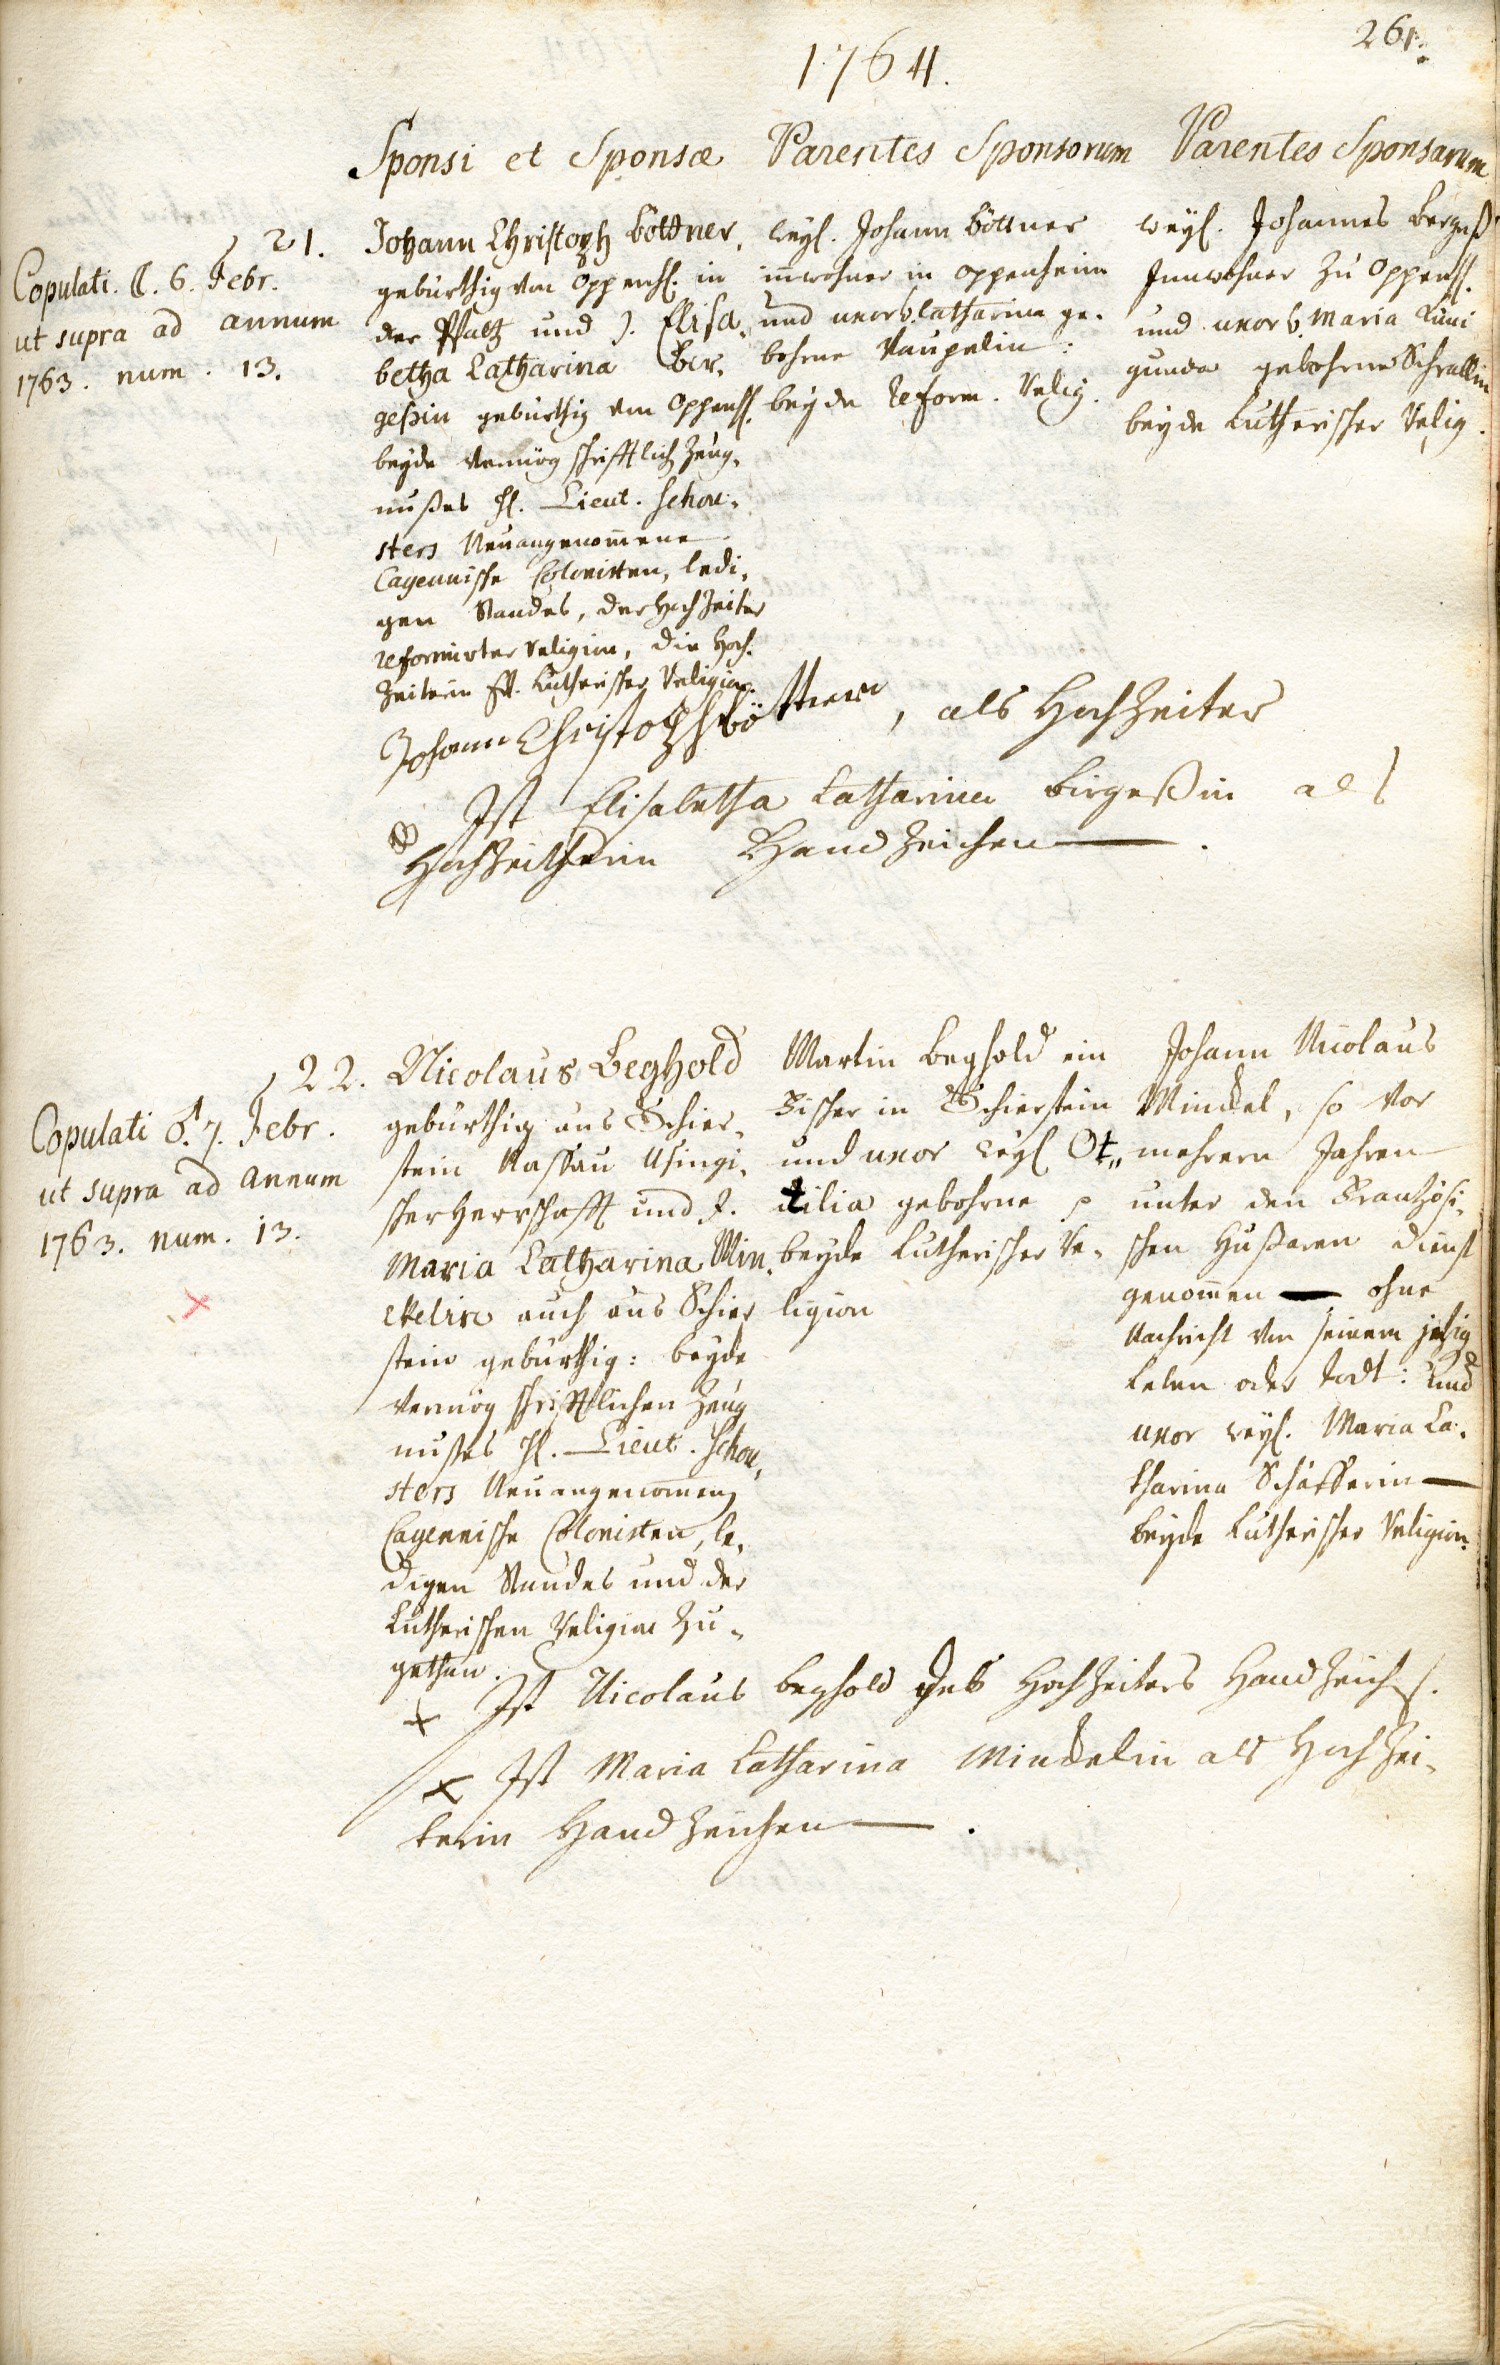 261.
1764.
Sponsi et Sponsæ Parentes Sponsorum Parentes Sponsarum
21.
Copulati. ☾. 6. Febr.
ut supra ad annum
1763. num. 13.
Johann Christoph Böttner,
gebürthig von Oppenh. in
der Pfaltz und J. Elisa„
betha Catharina Ber„
geßin gebürthig von Oppenh.
beyde vermög schrifftlich Zeug„
nußes H. Lieut. Schou„
sters Neuangenom̅ene
Cayennische Colonisten, ledi„
gen Standes, der Hochzeiter
reformirter Religion, die Hoch„
zeiterin Luthrischer Religion.
weyl. Johann Böttner
in̅wohner in Oppenheim
und uxor Catharina ge„
bohrne Vaupelin:
beyde Reform. Relig.
weyl. Johannes Bergeß
Innwohner zu Oppenh.
und uxor Maria Kuni
gunda gebohrne Schrallin
beyde Lutherischer Relig.
Johann Christoph Böttner, als Hochzeiter
Ist Elisabetha Catharina Birgeßin als
Hochzeitherin Handzeichen.
22.
Copulati ♂. 7. Febr.
ut supra ad annum
1763. num. 13.
Nicolaus Beghold
gebürthig aus Schier„
stein Nassau Usingi„
scher Herrschafft und J.
Maria Catharina Min„
ckelin auch aus Schier
stein gebürthig: beyde
vermög schrifftlichen Zeug
nußes H. Lieut. Schou„
sters Neuangenom̅eng
Cayennische Colonisten, le„
digen Standes und der
Lutherischen Religion zu„
gethan.
Martin Beghold ein
Fischer in Schierstein
und uxor weyl Ot„
tilia gebohrne
beyde Lutherischer Re„
ligion
Johann Nicolaus
Minckel, so vor
mehrern Jahren
unter den Frantzösi„
schen Hußaren dienst
genom̅en — ohne
Nachricht von seinem
Leben oder Todt: Und
uxor weyl. Maria Ca„
tharina Schäfferin —
beyde Lutherischer Religion.
x Ist Nicolaus Beghold des Hochzeiters Handzeich.
x Ist Maria Catharina Minckelin als Hochzei„
terin Handzeichen.